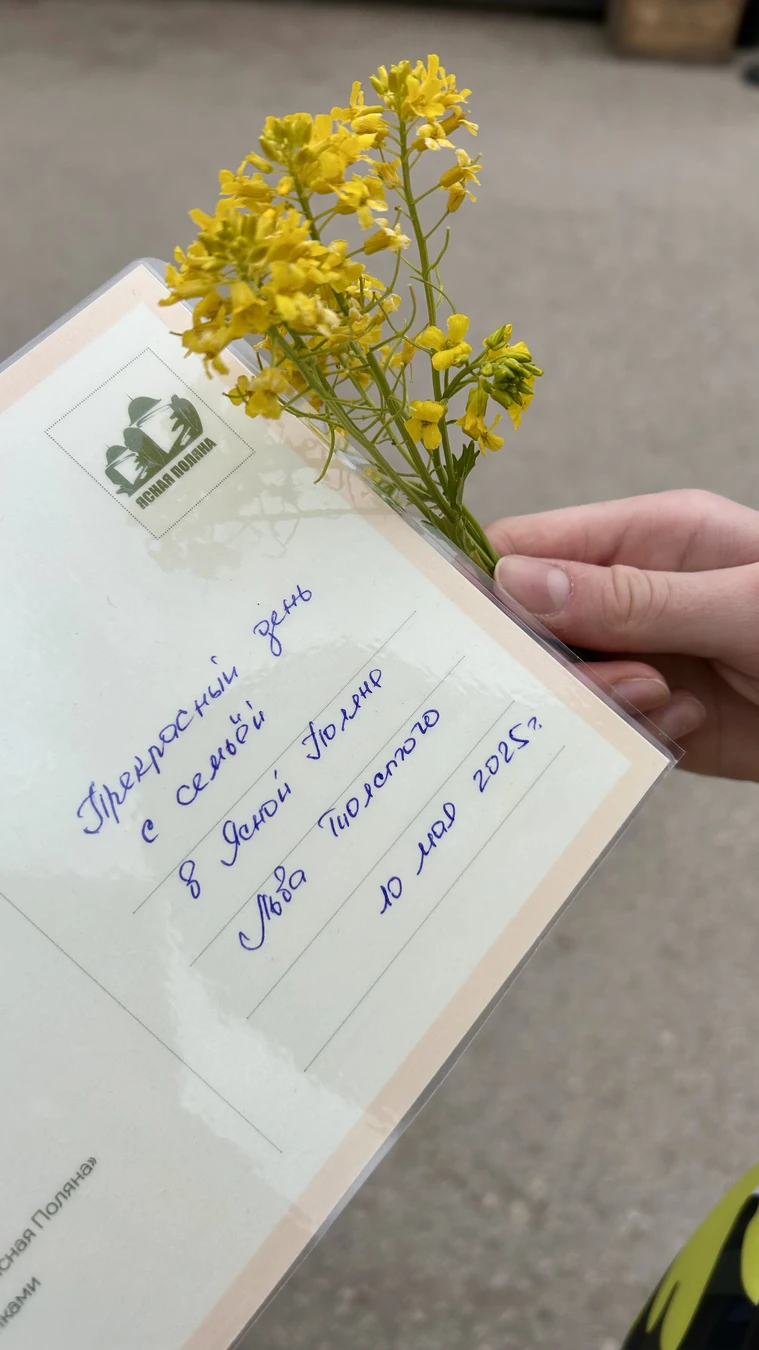 ЯСНАЯ ПОЛЯНА
Прекрасный день
с семьёй
в Ясной Поляне
Льва Толстого
10 мая 2025г.
сная Поляна»
лками